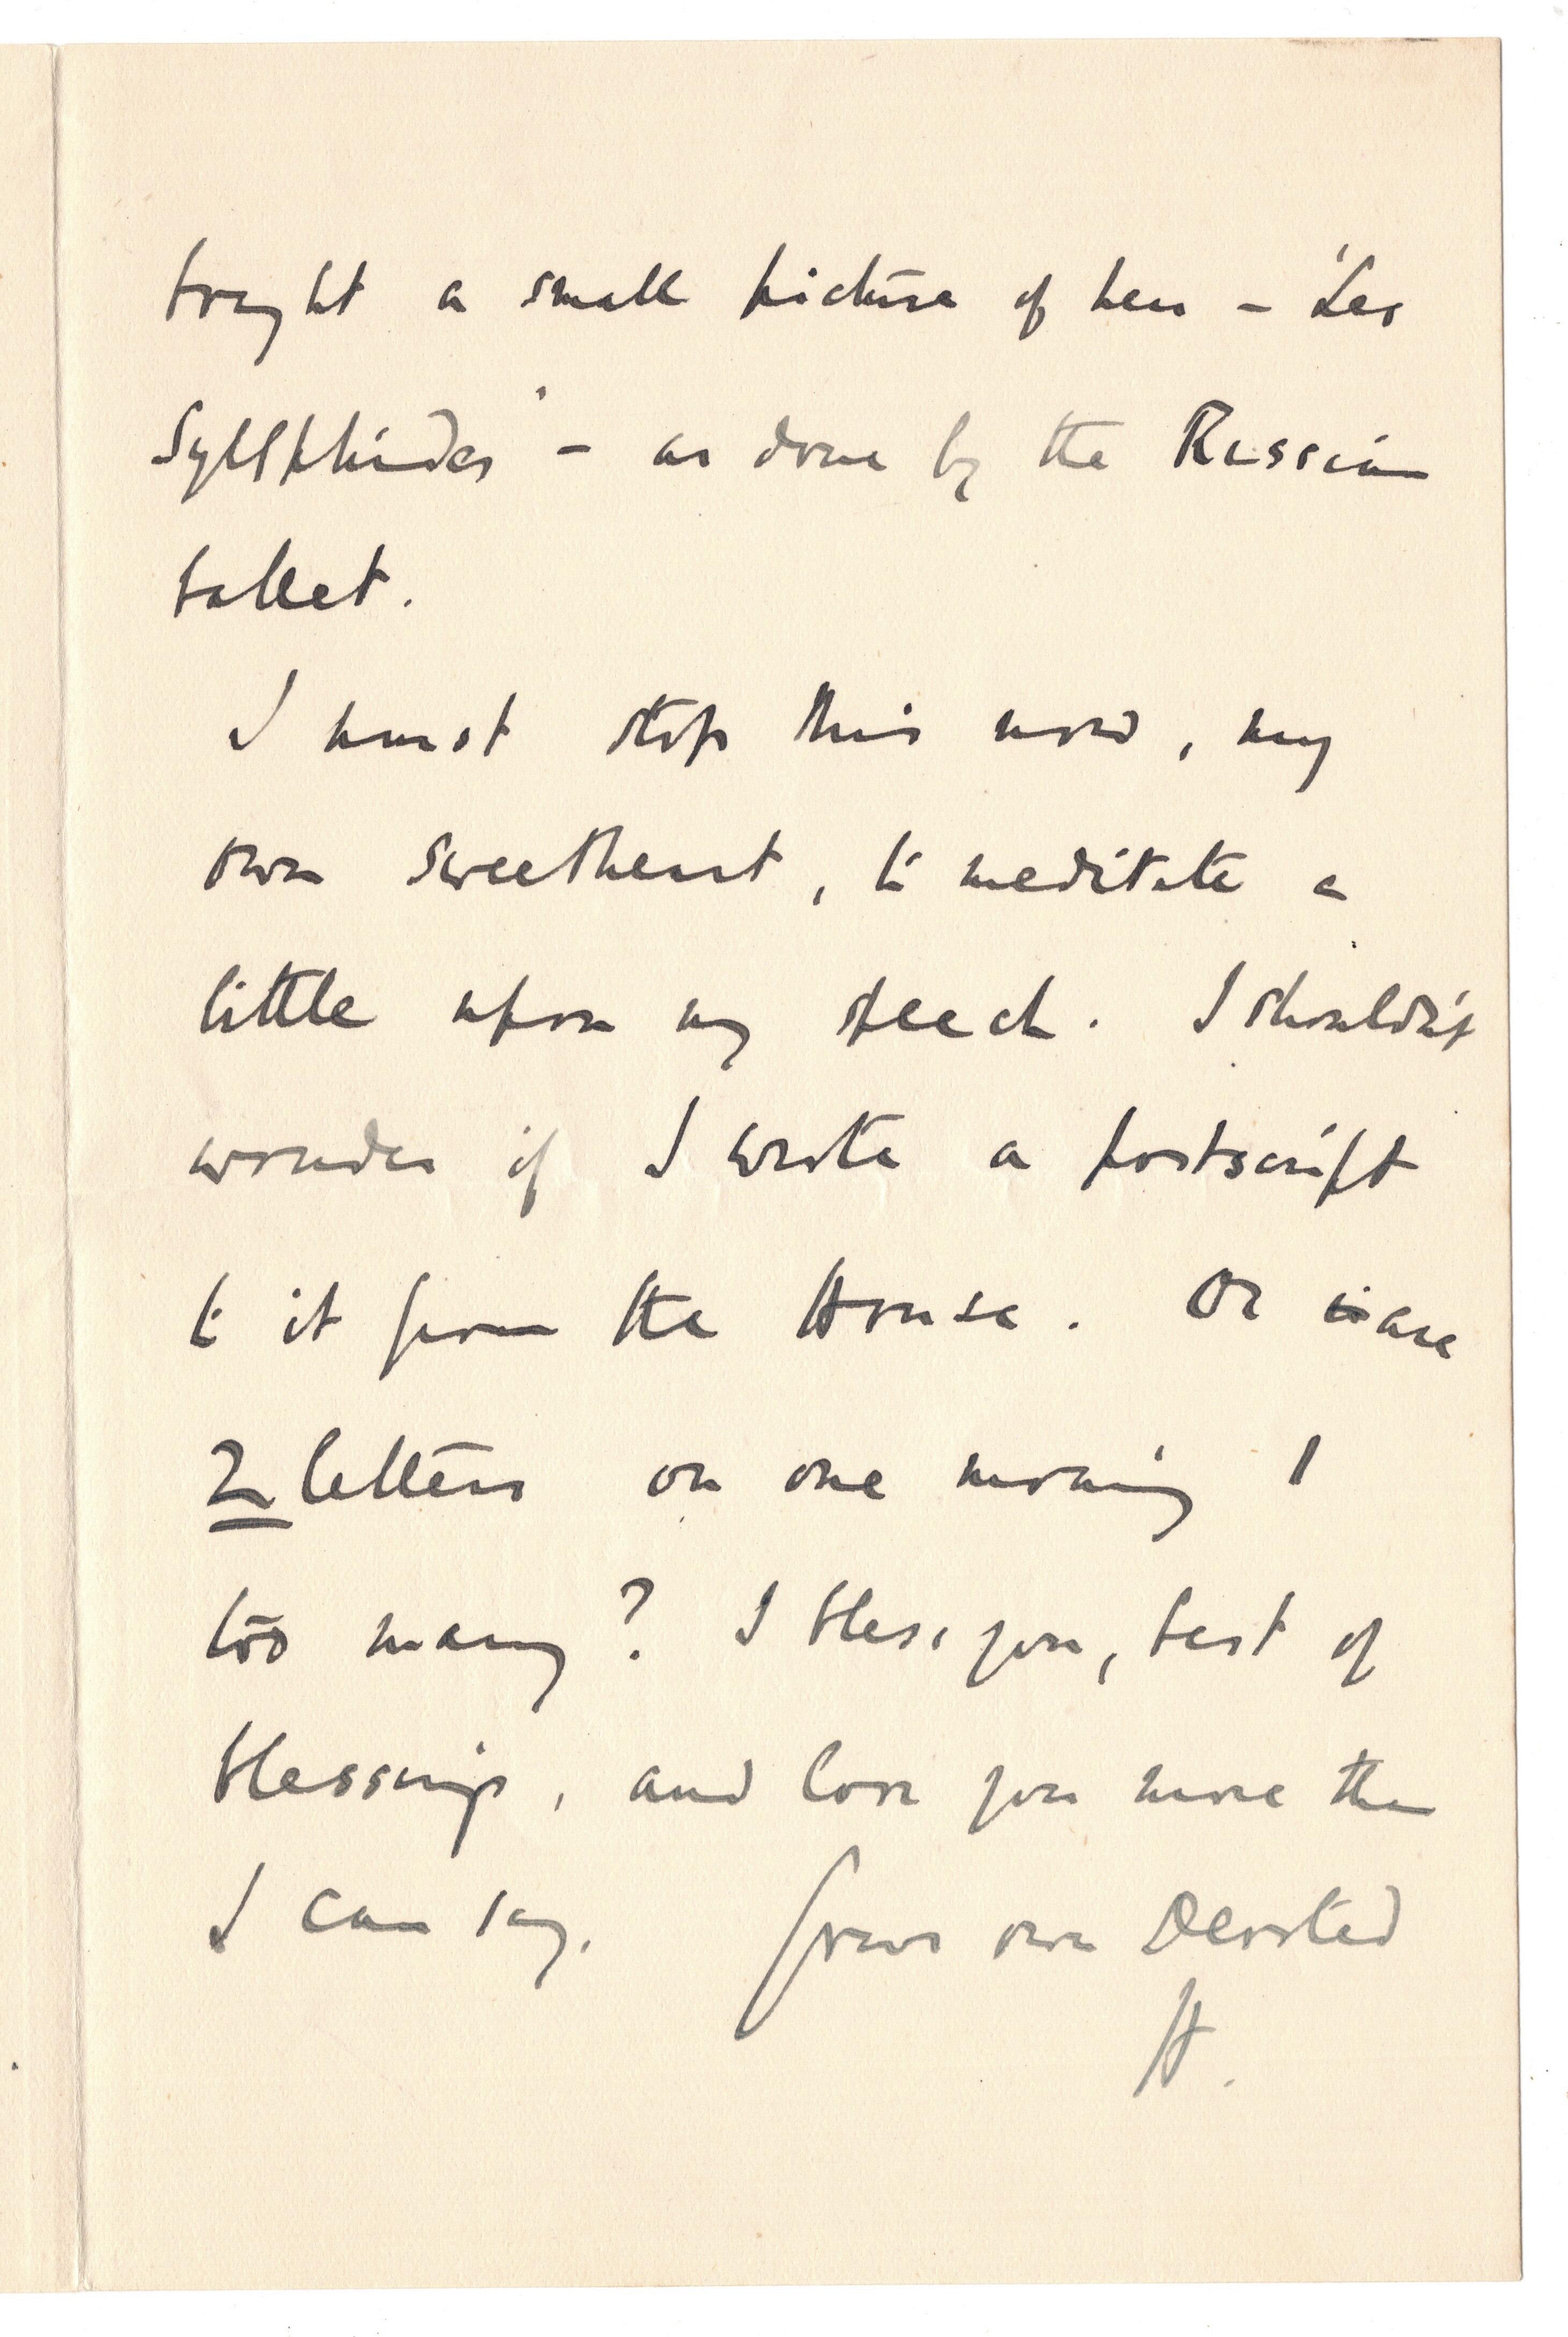 bought a small picture of hers – 'Les
Syllphides' – as done by the Russian
ballet.
I must stop this now, my
own sweetheart, to meditate a
little upon my speech. I shouldn't
wonder if I wrote a postscript
to it from the House. Or is are
2 letters on one morning 1
too many? I bless you, best of
blessings, and love you more than
I can say. Your own Devoted
H.